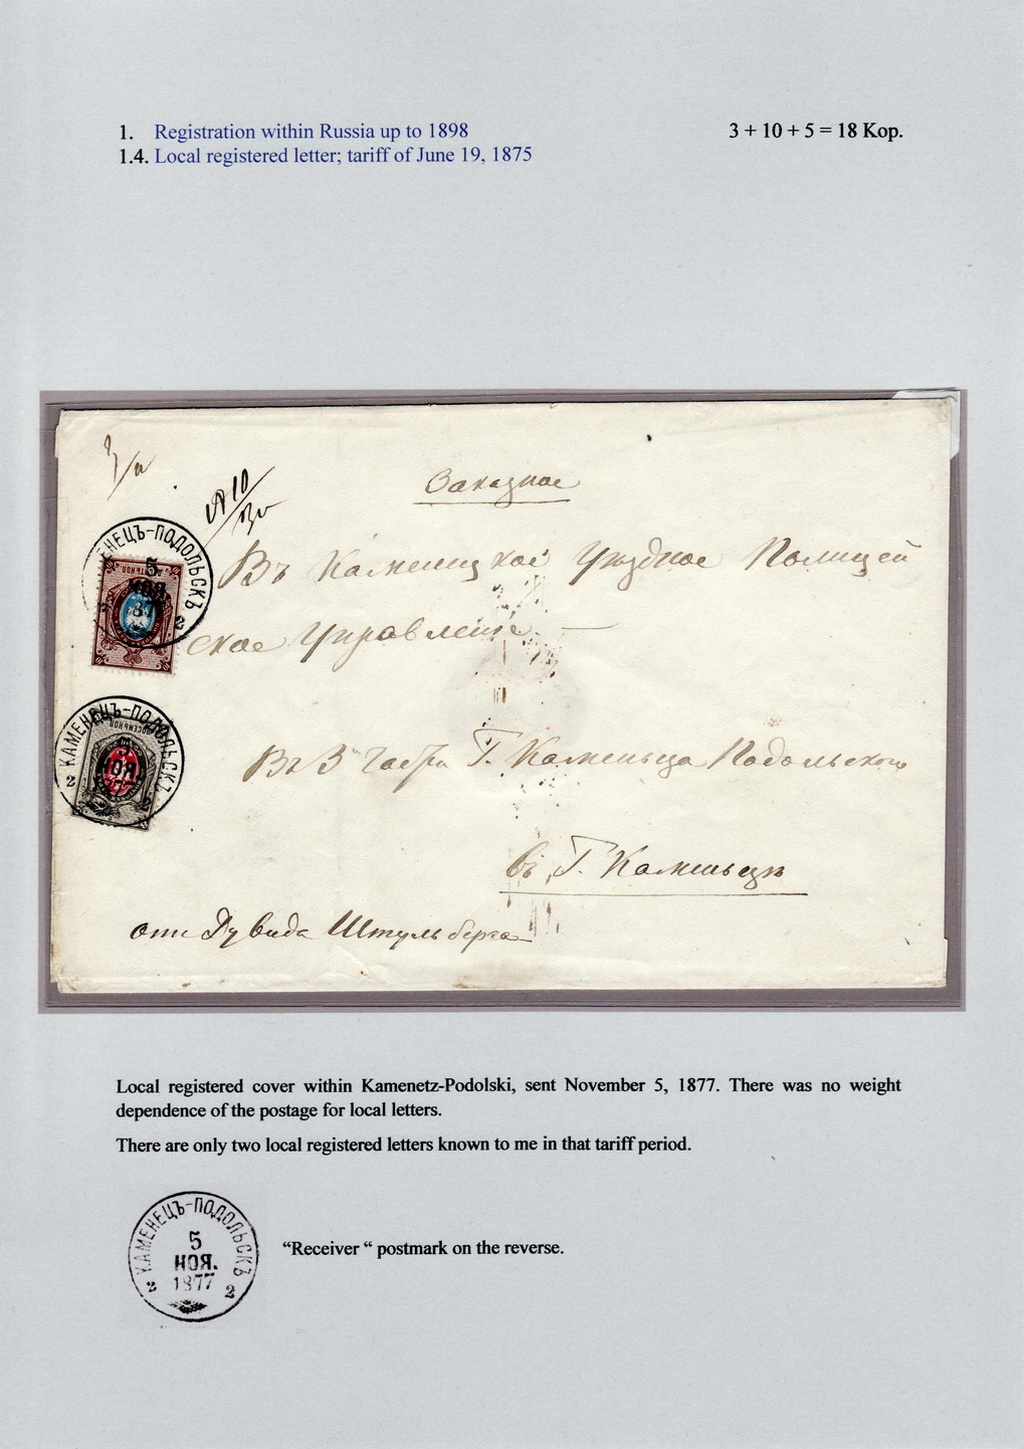 1. Registration within Russia up to 1898 3 + 10 + 5 = 18 Kop.
1.4. Local registered letter; tariff of June 19, 1875
Заказное
КАМЕНЕЦЪ-ПОДОЛЬСКЪ 5 НОЯ. 2
Въ Каменицкое Уѣздное Полицей
ское Управление. —
КАМЕНЕЦЪ-ПОДОЛЬСКЪ НОЯ 2 2
Въ 3 части Г. Каменьца Подольского
въ Г. Каменьцъ
отъ Дувида Штульберга
Local registered cover within Kamenetz-Podolski, sent November 5, 1877. There was no weight
dependence of the postage for local letters.
There are only two local registered letters known to me in that tariff period.
КАМЕНЕЦЪ-ПОДОЛЬСКЪ
5
НОЯ.
1877
2 2
“Receiver “ postmark on the reverse.